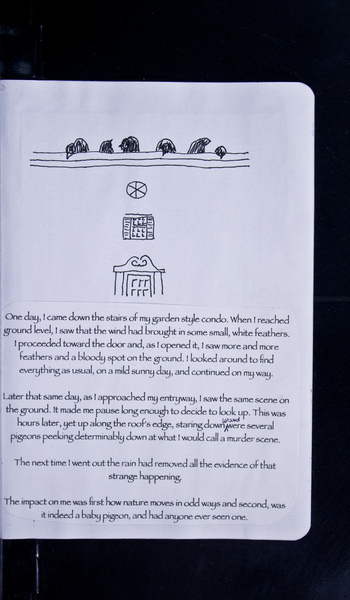 One day, I came down the stairs of my garden style condo. When I reached
ground level, I saw that the wind had brought in some small, white feathers.
I proceeded toward the door and, as I opened it, I saw more and more
feathers and a bloody spot on the ground. I looked around to find
everything as usual, on a mild sunny day, and continued on my way.
Later that same day, as I approached my entryway, I saw the same scene on
the ground. It made me pause long enough to decide to look up. This was
hours later, yet up along the roof's edge, staring down were several
pigeons peeking determinably down at what I would call a murder scene.
The next time I went out the rain had removed all the evidence of that
strange happening.
The impact on me was first how nature moves in odd ways and second, was
it indeed a baby pigeon, and had anyone ever seen one.